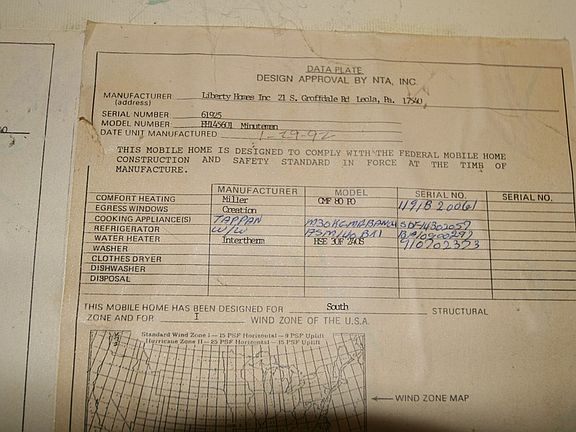 DATA PLATE
DESIGN APPROVAL BY NTA, INC.
MANUFACTURER Liberty Homes Inc 21 S. Groffdale Rd Leola, Pa. 17540
(address)
SERIAL NUMBER 61925
MODEL NUMBER Minuteman
DATE UNIT MANUFACTURED 1-29-92
THIS MOBILE HOME IS DESIGNED TO COMPLY WITH THE FEDERAL MOBILE HOME
CONSTRUCTION AND SAFETY STANDARD IN FORCE AT THE TIME OF
MANUFACTURE.
MANUFACTURER MODEL SERIAL NO. SERIAL NO.
COMFORT HEATING Miller CMF 80 PO 1191B20061
EGRESS WINDOWS Creation
COOKING APPLIANCE(S) TAPPAN
REFRIGERATOR W/W
WATER HEATER Intertherm 910702373
WASHER
CLOTHES DRYER
DISHWASHER
DISPOSAL
THIS MOBILE HOME HAS BEEN DESIGNED FOR South STRUCTURAL
ZONE AND FOR I WIND ZONE OF THE U.S.A.
Standard Wind Zone I — 15 PSF Horizontal — 9 PSF Uplift
Hurricane Zone II — 25 PSF Horizontal — 15 PSF Uplift
WIND ZONE MAP